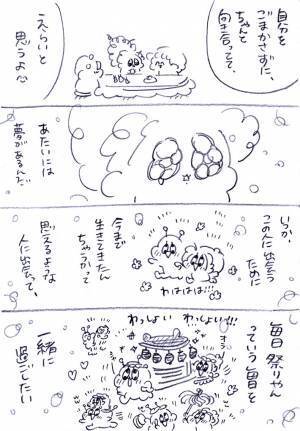 自分を
ごまかさずに、
ちゃんと
向き合ってて、
えらいと
思うよ
あたいには
夢があるんだ
いつか、
この人に出会う
ために
今まで
生きてきたん
ちゃうかって
思えるような
人に出会って、
わははは!!!
毎日祭りやん
っていう毎日を
わっしょい わっしょい!!!
一緒に
過ごしたい